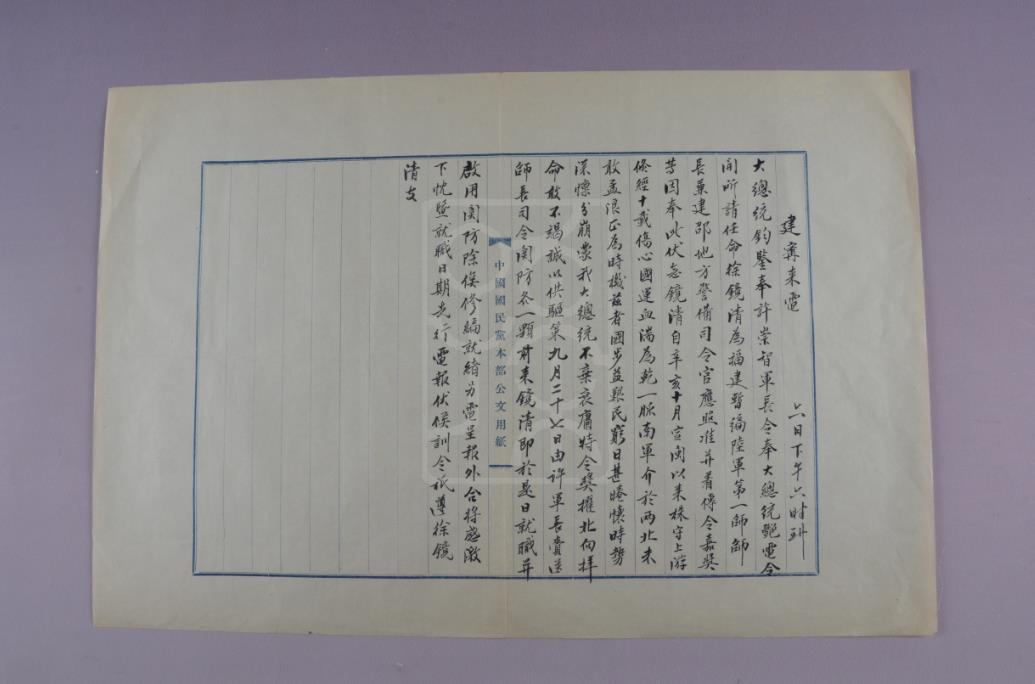 建甯來電　六日下午六時到
大總統鈞鑒奉許崇智軍長令奉大總統艷電令
開所請任命徐鏡清為福建暫編陸軍第一師師
長兼建邵地方警備司令官應照准并着傳令嘉獎
等因奉此伏念鏡清自辛亥十月宦閩以來株守上游
倏經十載傷心國運血淚為乾一旅南軍介於兩北未
敢孟浪正為時機茲者國步益艱民窮日甚睠懷時勢
深懷分崩蒙我大總統不棄衰庸特令獎擢北向拜
命敢不竭誠以供驅策九月二十七日由許軍長賫送
師長司令關防各一顆前來鏡清即於是日就職并
啟用關防除俟修編就緒另電呈報外合將感激
下忱暨就職日期先行電報伏候訓令祇遵徐鏡
清支
中國國民黨本部公文用紙